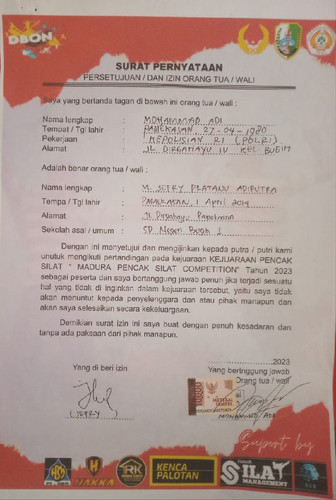 DBON
SURAT PERNYATAAN
PERSETUJUAN / DAN IZIN ORANG TUA / WALI
Saya yang bertanda tagan di bawah ini orang tua / wali :
Nama lengkap : MOHAMMAD ADI
Tempat / Tgl lahir : PAMEKASAN 27-04-1980
Pekerjaan : KEPOLISIAN RI (POLRI)
Alamat : JL. DIRGAHAYU IV KEL BUGIH
Adalah benar orang tua / wali :
Nama lengkap : M. JEFRY PLATANU ADIPUTRA
Tempat / Tgl lahir : PAMEKASAN, 1 April 2014
Alamat : Jl. Dirgahayu, Pamekasan
Sekolah asal / umum : SD Negeri Bugih 1
Dengan ini menyetujui dan mengijinkan kepada putra / putri kami
unutuk mengikuti pertandingan pada kejuaraan KEJUARAAN PENCAK
SILAT " MADURA PENCAK SILAT COMPETITION" Tahun 2023
sebagai peserta dan saya bertanggung jawab penuh jika terjadi sesuatu
hal yang tidak di inginkan dalam kejuaraan tersebut, yaitu saya tidak
akan menuntut kepada penyelenggara dan atau pihak manapun dan
akan saya selesaikan secara kekeluargaan.
Demikian surat izin ini saya buat dengan penuh kesadaran dan
tanpa ada paksaan dari pihak manapun.
2023
Yang di beri izin
Yang bertnggung jawab
Orang tua / wali
10000
METERAI TEMPEL
(JEFRY)
MOHAMMAD ADI
Suport by
HAKKA
RK
KENCA
PALOTAN
SILAT
MANAGEMENT